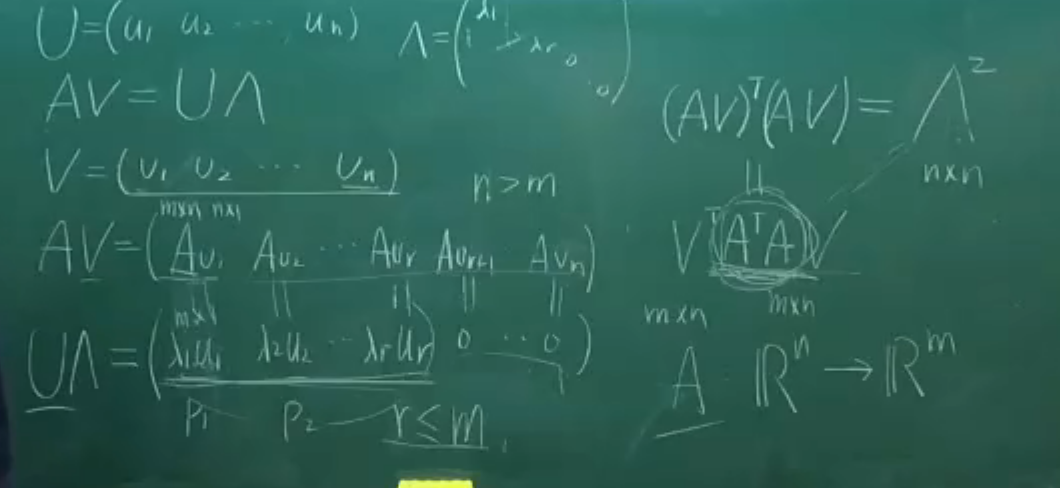 U=(u₁ u₂ ⋯, uₙ) Λ=(λ₁ λr 0 ⋱ 0)
AV=UΛ
V=(υ₁ υ₂ ⋯ υₙ) n>m
m×n n×1
AV=(Aυ₁ Aυ₂ ⋯ Aυr Aυr+1 Aυₙ)
|| || || || ||
m×1
UΛ=(λ₁u₁ λ₂u₂ ⋯ λrur 0 ⋯ 0)
P₁ P₂ r≤m
(AV)ᵀ(AV)=Λ²
|| n×n
VᵀAᵀAV
m×n m×n
A ℝⁿ→ℝᵐ